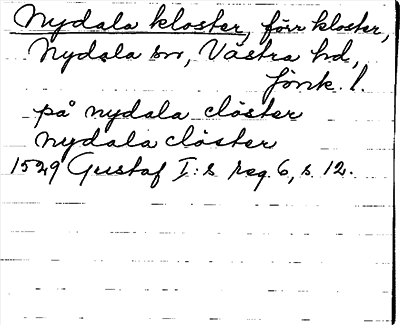 Nydala kloster, förr kloster,
Nydala sn, Västra hd,
Jönk. l.
på nydala clöster
nydala clöster
1529 Gustaf I:s reg. 6, s. 12.